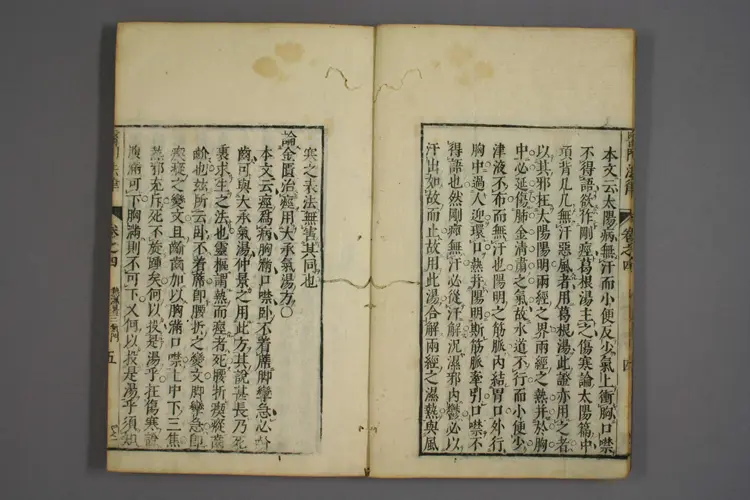 本文云太陽病無汗而小便反少氣上衝胸口噤
不得語欲作剛痙葛根湯主之傷寒論太陽篇中
項背几几無汗惡風者用葛根湯此證亦用之者
以其邪在太陽陽明兩經之界兩經之熱并於胸
中必延傷肺金清肅之氣故水道不行而小便少
津液不布而無汗也陽明之筋脈內結胃口外行
胸中過人迎環口熱并陽明斯筋脈牽引口噤不
得語也然剛痙無汗必從汗解況濕邪內鬱必以
汗出如故而止故用此湯合解兩經之濕熱與風
寒之表法無害其同也
論金匱治痙用大承氣湯方
本文云痙為病胸滿口噤臥不着蓆脚攣急必齘
齒可與大承氣湯仲景之用此方其說甚長乃死
裏求生之法也靈樞謂熱而痙者死腰折瘛瘲齒
齘也兹所云卧不着蓆即腰折之變文脚攣急即
瘛瘲之變文且齘齒加以胸滿口噤上中下三焦
熱邪充斥死不旋踵矣何以投是湯乎在傷寒證
腹痛可下胸滿則不可下又何以投是湯乎須知
卷之四
五